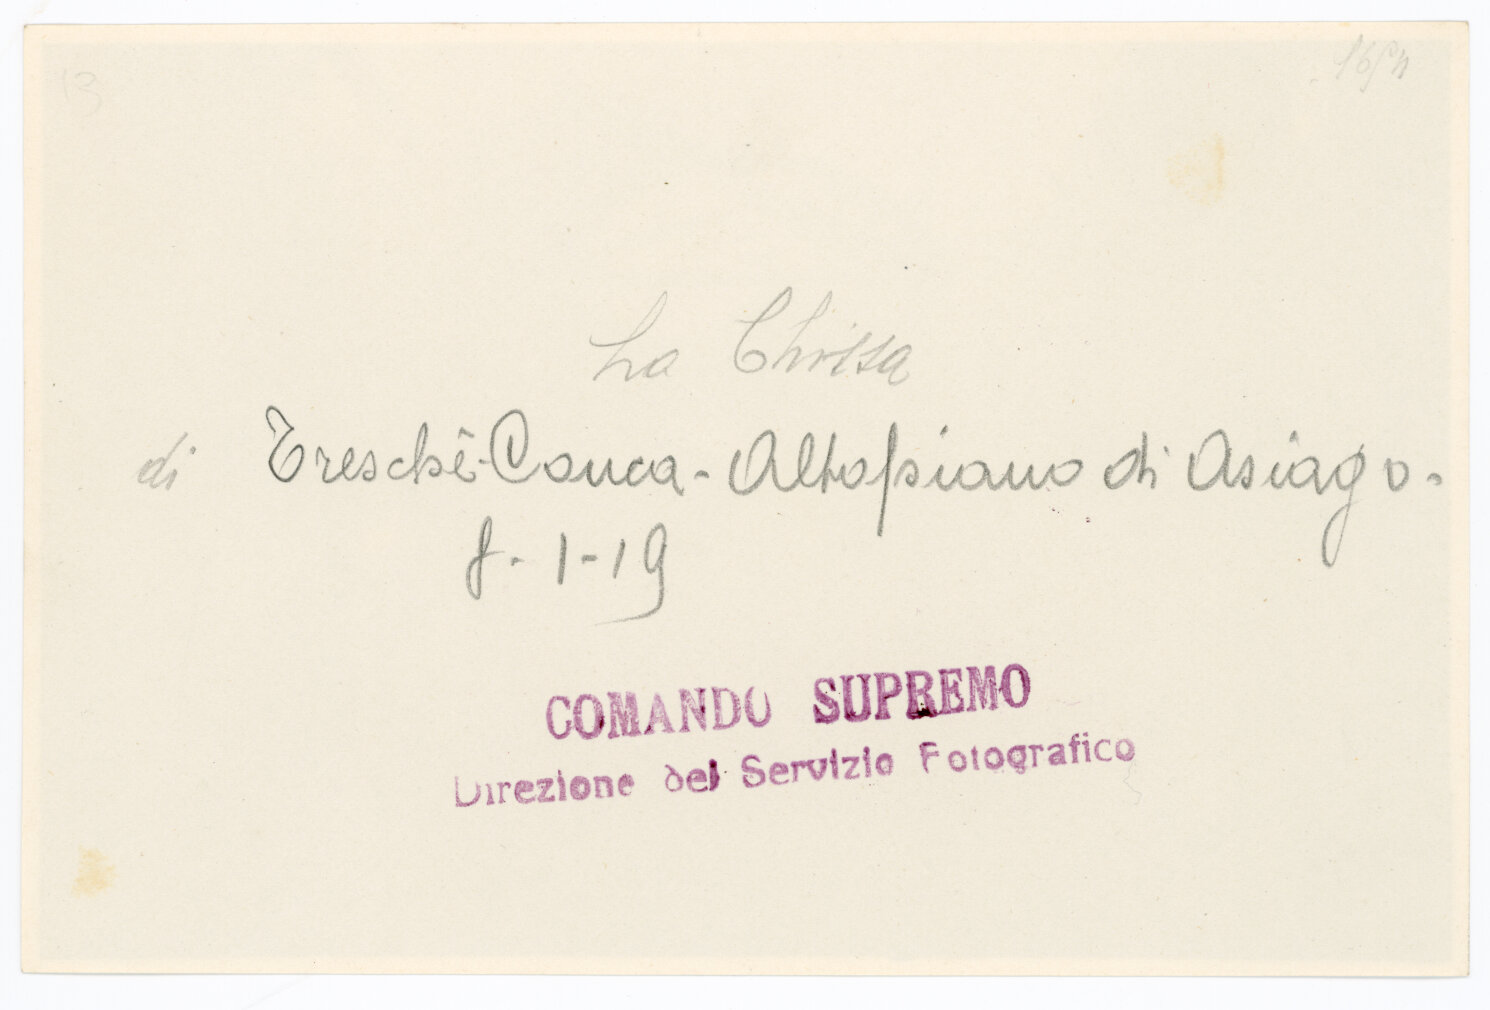 13
La Chiesa
di Treschè-Conca-Altopiano di Asiago-
8-1-19
COMANDO SUPREMO
Direzione del Servizio Fotografico